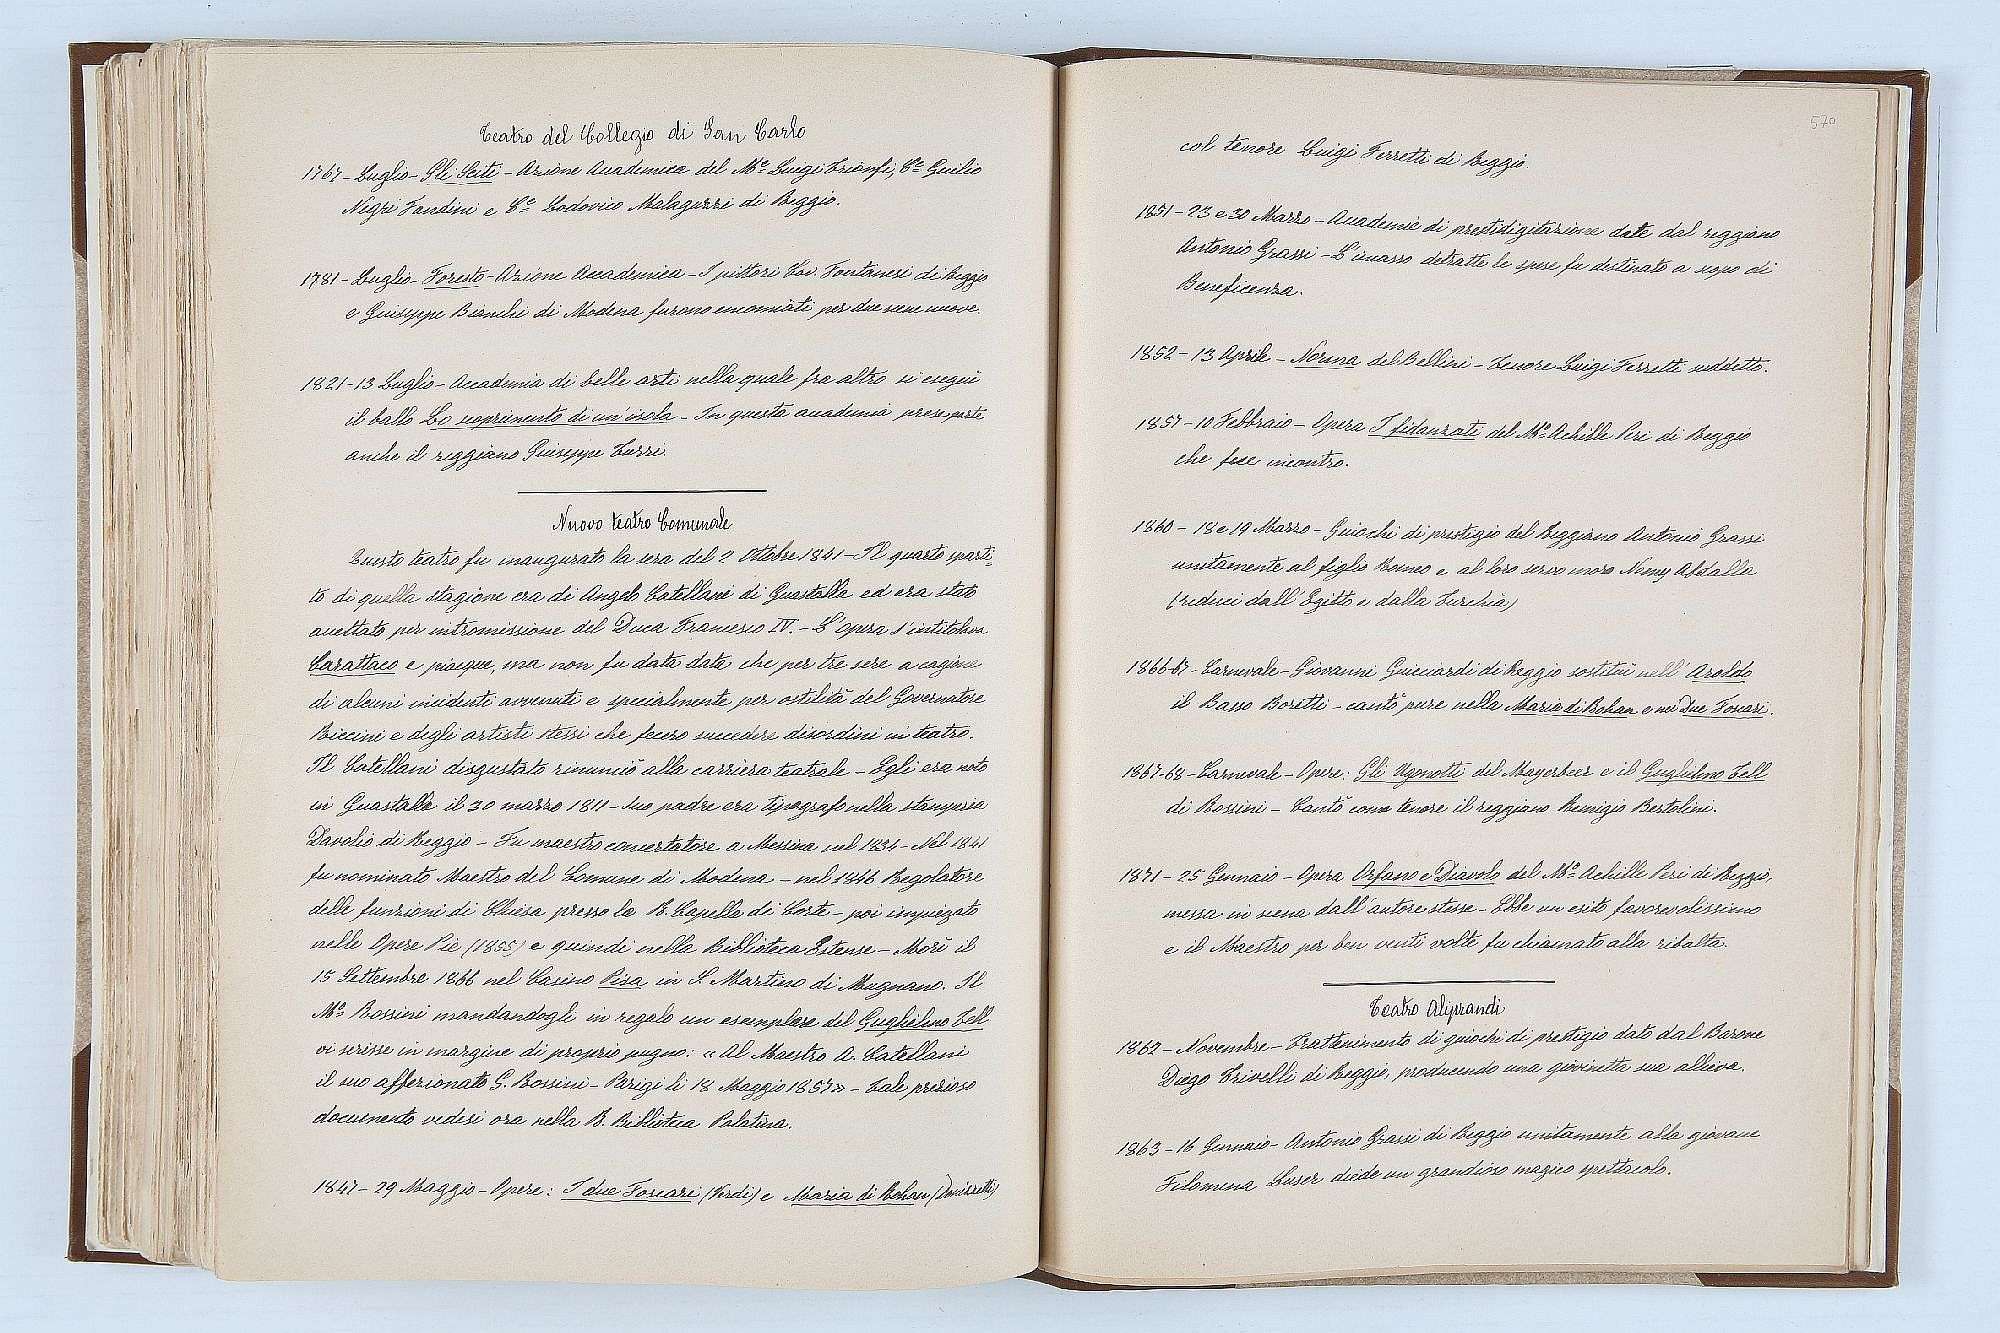 Teatro del Collegio di San Carlo
1767 - Luglio - Gli Sciti - Azione Accademica del Mo. Luigi Trionfi, Ce. Giulio
Negri Fandini e Ce. Lodovico Malaguzzi di Reggio.
1781 - Luglio - Foresto - Azione Accademica - I pittori Cav. Fontanesi di Reggio
e Giuseppe Bianchi di Modena furono encomiati per due scene nuove.
1821 - 13 Luglio - Accademia di belle arti nella quale fra altro si eseguì
il ballo Lo scoprimento di un'isola - In questa accademia prese parte
anche il reggiano Giuseppe Turri.
Nuovo teatro Comunale
Questo teatro fu inaugurato la sera del 2 Ottobre 1841 - Il quarto sparti-
to di quella stagione era di Angelo Catellani di Guastalla ed era stato
accettato per intromissione del Duca Francesco IV. - L'opera s'intitolava
Carattaco e piacque, ma non fu data data che per tre sere a cagione
di alcuni incidenti avvenuti e specialmente per ostilità del Governatore
Riccini e degli artisti stessi che fecero succedere disordini in teatro.
Il Catellani disgustato rinunciò alla carriera teatrale - Egli era nato
in Guastalla il 30 marzo 1811 - suo padre era tipografo nella stamperia
Davolio di Reggio - Fu maestro concertatore a Messina nel 1834 - Nel 1841
fu nominato Maestro del Comune di Modena - nel 1846 Regolatore
delle funzioni di Chiesa presso la R. Capella di Corte - poi impiegato
nelle Opere Pie (1855) e quindi nella Biblioteca Estense - Morì il
15 Settembre 1866 nel Casino Pisa in S. Martino di Mugnano. Il
Mo. Rossini mandandogli in regalo un esemplare del Guglielmo Tell
vi scrisse in margine di proprio pugno: « Al Maestro A. Catellani
il suo affezionato G. Rossini - Parigi li 18 Maggio 1857 » - Tale prezioso
documento vedesi ora nella R. Biblioteca Palatina.
1847 - 29 Maggio - Opere: I due Foscari (Verdi) e Maria di Rohan (Donizzetti)
570
col tenore Luigi Ferretti di Reggio.
1851 - 23 e 30 Marzo - Accademie di prestidigitazione date dal reggiano
Antonio Grassi - L'incasso detratte le spese fu destinato a scopo di
Beneficenza.
1852 - 13 Aprile - Norma del Bellini - Tenore Luigi Ferretti suddetto.
1857 - 10 Febbraio - Opera I fidanzati del Mo. Achille Peri di Reggio
che fece incontro.
1860 - 18 e 19 Marzo - Giuochi di prestigio del Reggiano Antonio Grassi
unitamente al figlio Romeo e al loro servo moro Namy Abdalla
(reduci dall'Egitto e dalla Turchia)
1866-67 - Carnevale - Giovanni Guicciardi di Reggio sostituì nell'Aroldo
il Basso Boretti - cantò pure nella Maria di Rohan e nei Due Foscari.
1867-68 - Carnevale - Opere: Gli Ugonotti del Mayerbeer e il Guglielmo Tell
di Rossini - Cantò come tenore il reggiano Remigio Bertolini.
1871 - 25 Gennaio - Opera Orfano e Diavolo del Mo. Achille Peri di Reggio,
messa in scena dall'autore stesso - Ebbe un esito favorevolissimo
e il Maestro per ben venti volte fu chiamato alla ribalta.
Teatro Aliprandi
1862 - Novembre - Trattenimento di giuochi di prestigio dato dal Barone
Diego Trivelli di Reggio, producendo una giovinetta sua allieva.
1863 - 16 Gennaio - Antonio Grassi di Reggio unitamente alla giovane
Filomena Luser diede un grandioso magico spettacolo.